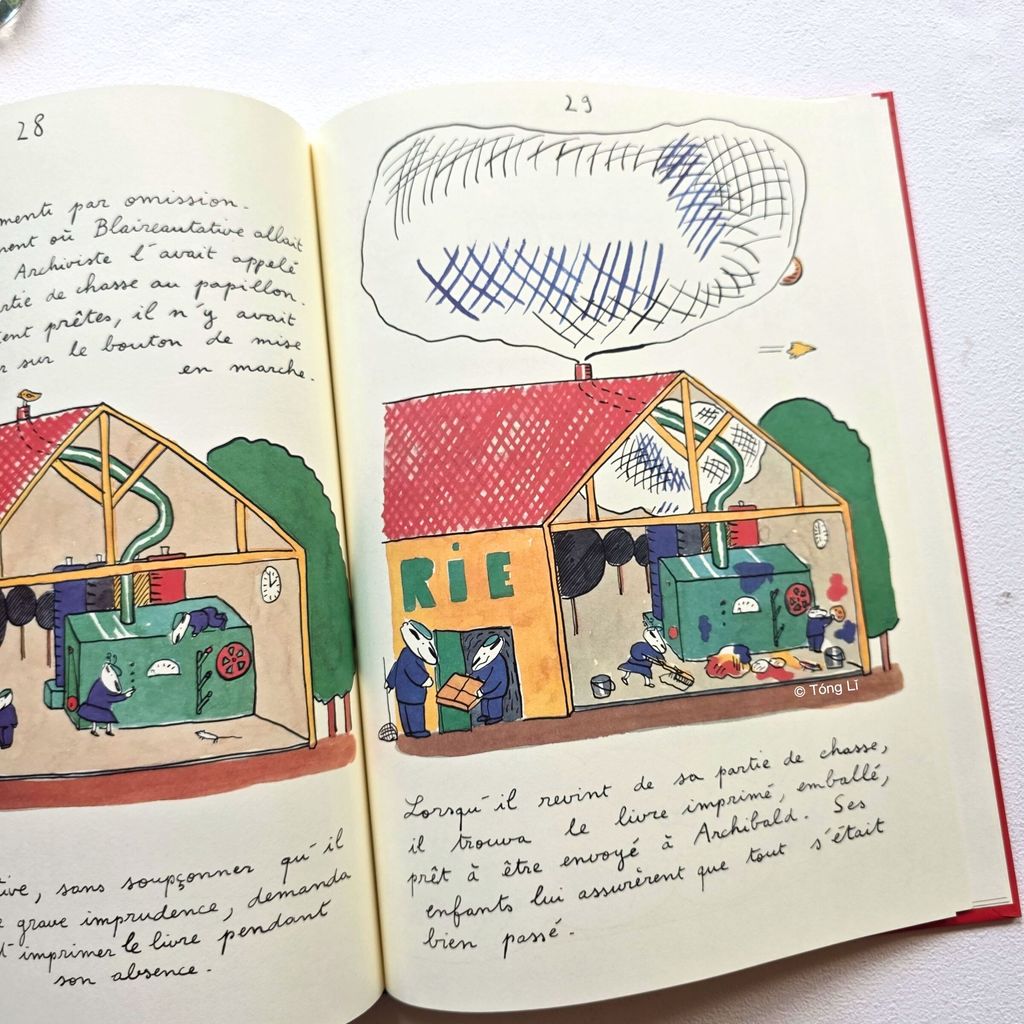 28
menti par omission.
ment où Blaireautative allait
Archiviste l'avait appelé
rtie de chasse au papillon.
ient prêtes, il n'y avait
r sur le bouton de mise
en marche.
tive, sans soupçonner qu'il
e grave imprudence, demanda
d'imprimer le livre pendant
son absence.
29
RiE
© Tóng Lǐ
Lorsqu'il revint de sa partie de chasse,
il trouva le livre imprimé, emballé,
prêt à être envoyé à Archibald. Ses
enfants lui assurèrent que tout s'était
bien passé.